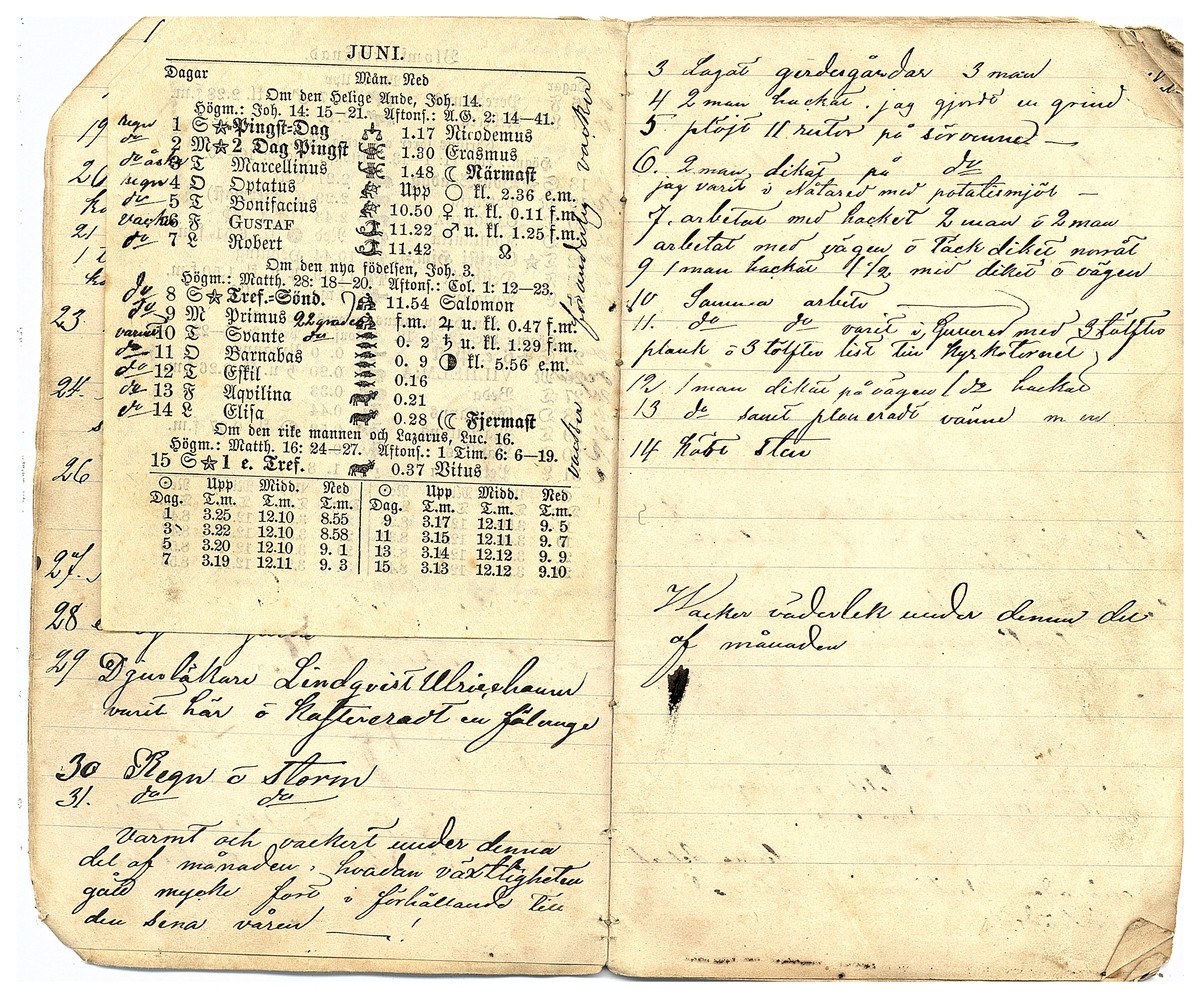 JUNI.
Dagar Mån. Ned
Om den Helige Ande, Joh. 14.
Högm.: Joh. 14: 15—21. Aftonf.: A.G. 2: 14—41.
regn 1 S ☆ Pingst-Dag 1.17 Nicodemus
do 2 M ☆ 2 Dag Pingst 1.30 Erasmus
do åska 3 T Marcellinus 1.48 ☾ Närmast
regn 4 O Optatus Upp ○ kl. 2.36 e.m.
do 5 T Bonifacius 10.50 ♀ n. kl. 0.11 f.m.
vackert 6 F GUSTAF 11.22 ♂ n. kl. 1.25 f.m.
do 7 L Robert 11.42 8
Om den nya födelsen, Joh. 3.
Högm.: Matth. 28: 18—20. Aftonf.: Col. 1: 12—23.
do 8 S ☆ Tref.-Sönd. 11.54 Salomon
do 9 M Primus 22 grader f.m. ♃ n. kl. 0.47 f.m.
varmt 10 T Svante do 0. 2 ♄ n. kl. 1.29 f.m.
do 11 O Barnabas 0. 9 ◑ kl. 5.56 e.m.
do 12 T Eskil 0.16
do 13 F Aqvilina 0.21
do 14 L Elisa 0.28 (☾ Fjermast
Om den rike mannen och Lazarus, Luc. 16.
Högm.: Matth. 16: 24—27. Aftonf.: 1 Tim. 6: 6—19.
15 S ☆ 1 e. Tref. 0.37 Vitus
☉ Upp Midd. Ned ☉ Upp Midd. Ned
Dag. T.m. T.m. T.m. Dag. T.m. T.m. T.m.
1 3.25 12.10 8.55 9 3.17 12.11 9. 5
3 3.22 12.10 8.58 11 3.15 12.11 9. 7
5 3.20 12.10 9. 1 13 3.14 12.12 9. 9
7 3.19 12.11 9. 3 15 3.13 12.12 9.10
förändring vacker
19
20
21
23
24.
26
27.
28
29 Djurläkare Lindqvist Ulricehamn
varit här ö kastereradt en fålunge
30 Regn ö storm
31. do do
Varmt och vackert under denna
del af månaden, hvadan växtligheten
gått mycke fort i förhållande till
den sena våren — !
3 Lagat gerdesgårdar 3 man
4 2 man hackat. jag gjordt en grind
5. plöjt 11 rutor på —
6. 2 man dikat på do
jag varit i Nåtared med potatismjöl —
7. arbetat med hacket 2 man ö 2 man
arbetat med vägen ö täck diket norråt
9 1 man hackat 1 1/2 med diket ö vägen
10 Samma arbete
11. do do varit i med 3 tolfter
plank ö 3 tolfter list till Kyrkotornet
12 1 man dikat på vägen 1 do hackat
13 do samt planeradt vänne m m
14 Kört sten
Wacker väderlek under denna del
af månaden